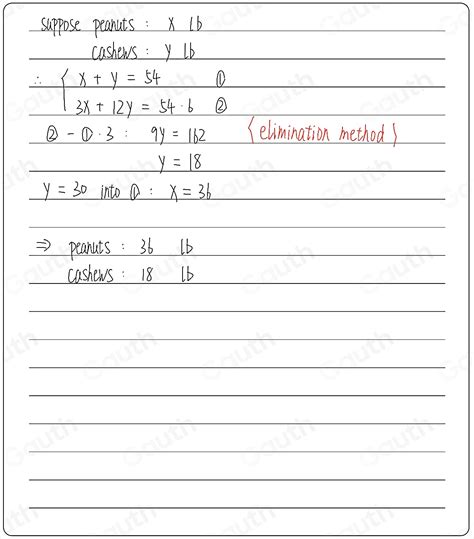 suppose peanuts : x lb
cashews : y lb
∴ { x + y = 54 ①
3x + 12y = 54 · 6 ②
② - ① · 3 : 9y = 162 {elimination method}
y = 18
y = 30 into ① : x = 36
⇒ peanuts : 36 lb
cashews : 18 lb
Gauth